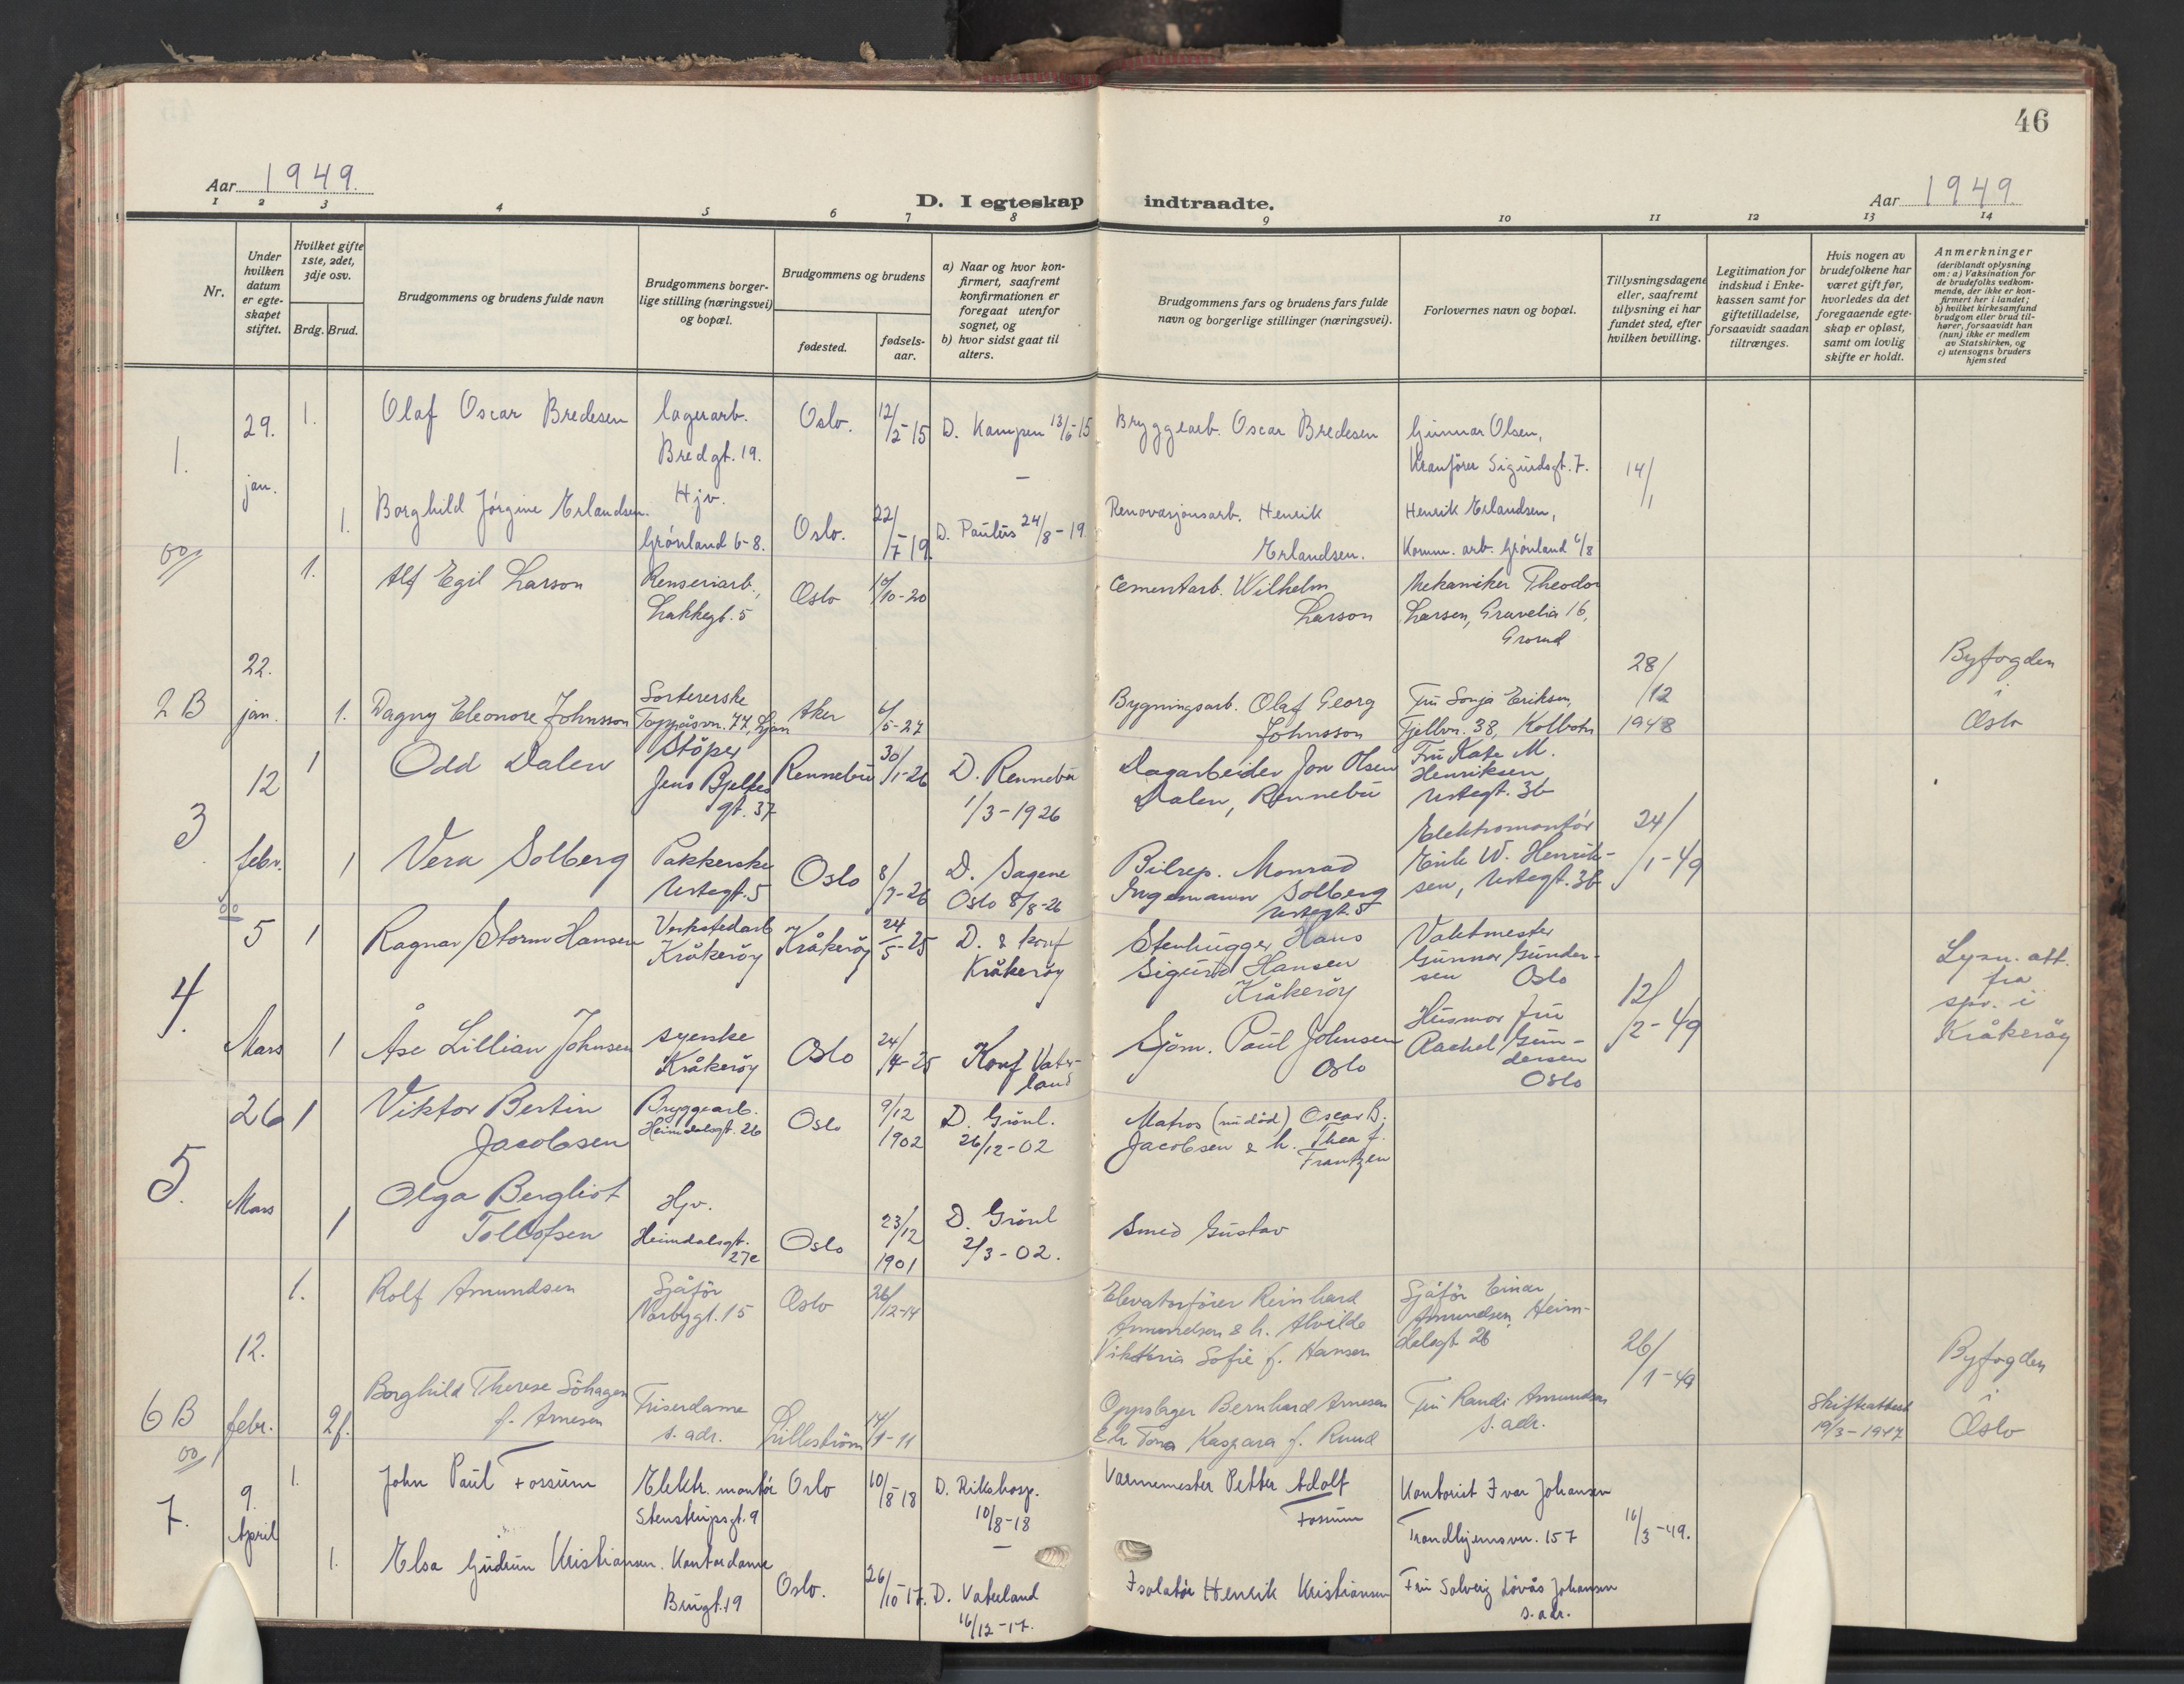 46
Aar 1949.
D. I egteskap indtraadte.
Aar 1949
1 2 3 4 5 6 7 8 9 10 11 12 13 14
Nr.
Under hvilken datum er egteskapet stiftet.
Hvilket gifte 1ste, 2det, 3dje osv.
Brdg. Brud.
Brudgommens og brudens fulde navn
Brudgommens borgerlige stilling (næringsvei) og bopæl.
Brudgommens og brudens
fødested.
fødselsaar.
a) Naar og hvor konfirmert, saafremt konfirmationen er foregaat utenfor sognet, og
b) hvor sidst gaat til alters.
Brudgommens fars og brudens fars fulde navn og borgerlige stillinger (næringsvei).
Forlovernes navn og bopæl.
Tillysningsdagene eller, saafremt tillysning ei har fundet sted, efter hvilken bevilling.
Legitimation for indskud i Enkekassen samt for giftetilladelse, forsaavidt saadan tiltrænges.
Hvis nogen av brudefolkene har været gift før, hvorledes da det foregaaende egteskap er opløst, samt om lovlig skifte er holdt.
Anmerkninger (deriblandt oplysning om: a) Vaksination for de brudefolks vedkommende, der ikke er konfirmert her i landet; b) hvilket kirkesamfund brudgom eller brud tilhører, forsaavidt han (hun) ikke er medlem av Statskirken, og c) utensogns bruders hjemsted
1. 29. jan. 1. Olaf Oscar Bredesen lagerarb. Bredgt. 19. Oslo. 12/2-15 D. Kampen 13/6-15 Bryggearb. Oscar Bredesen Gunnar Olsen, Kranfører Sigurdsgt. 7. 14/1
1. Borghild Jørgine Erlandsen. Hjv. Grønland 6-8. Oslo. 22/7-19 D. Paulus 24/8-19 Renovasjonsarb. Henrik Erlandsen. Henrik Erlandsen, Komm. arb. Grønland 6/8
2 B 22. jan. 1. Alf Egil Larson Renseriarb., Lakkegt. 5 Oslo /10-20 Cementarb. Wilhelm Larson Mekaniker Theodor Larsen, Gravelia 16, Grorud 28/12 1948 Byfogden i Oslo
1. Dagny Eleonore Johnsson Sortererske Toppåsvn. 77, Ljan Aker 6/5-27 Bygningsarb. Olaf Georg Johnsson Fru Sonja Eriksen, Fjellvn. 38, Kolbotn
3 12 febr. 1 Odd Dalen Støper Jens Bjelkes gt. 37 Rennebu 30/1-26 D. Rennebu 1/3-1926 Dagarbeider Jon Olsen Dalen, Rennebu Fru Kate M. Henriksen, Urtegt. 3b 24/1-49
1 Vera Solberg Pakkerske Urtegt. 5 Oslo 8/7-26 D. Sagene Oslo 8/8-26 Bilrep. Monrad Ingemann Solberg Urtegt. 5 Elektromontör Erik W. Henriksen, Urtegt. 3b
4. 5 Mars 1 Ragnar Storm Hansen Verkstedarb Kråkerøy Kråkerøy 24/5-25 D. & konf Kråkerøy Stenhugger Hans Sigurd Hansen Kråkerøy Vaktmester Gunnar Gundersen Oslo 12/2-49 Lysn. att. fra spr. i Kråkerøy
1 Åse Lillian Johnsen syerske Kråkerøy Oslo 24/4-25 Konf Vaterland Sjøm. Paul Johnsen Oslo Husmor fru Rachel Gundersen Oslo
5. 26 Mars 1 Viktor Bertin Jacobsen Bryggearb. Heimdalsgt. 26 Oslo 9/12 1902 D. Grønl. 26/12-02 Matros (nu död) Oscar B. Jacobsen & h. Thea f. Frantzen
1 Olga Bergliot Tollofsen Hjv. Heimdalsgt. 27c Oslo 23/12 1901 D. Grönl 2/3-02. Smed Gustav
6 B 12. febr. 1. Rolf Amundsen Sjåfør Norbygt. 15 Oslo 26/12-14 Elevatorfører Reinhard Amundsen & h. Alvilde Viktoria Sofie f. Hansen Sjåfør Einar Amundsen, Heimdalsgt 26 26/1-49 Byfogden i Oslo
2f. Borghild Therese Söhagen f. Arnesen Friserdame s. adr. Lillestrøm 14/1-11 Oppslager Bernhard Arnesen & h. Tora Kaspara f. Ruud Fru Randi Amundsen s. adr. Skifteattest 19/3-1947
7. 9. April 1. John Paul Fossum Elektr. montør Stenstrupsgt. 9 Oslo 10/8-18 D. Rikshosp. 10/8-18 Varmemester Petter Adolf Fossum Kontorist Ivar Johansen Trondhjemsvn. 157 16/3-49.
1. Elsa Gudrun Kristiansen. Kontordame Brugt. 19 Oslo. 26/10-17. D. Vaterland 16/12-17. Isolatør Henrik Kristiansen Fru Solveig Løvås Johansen s. adr.